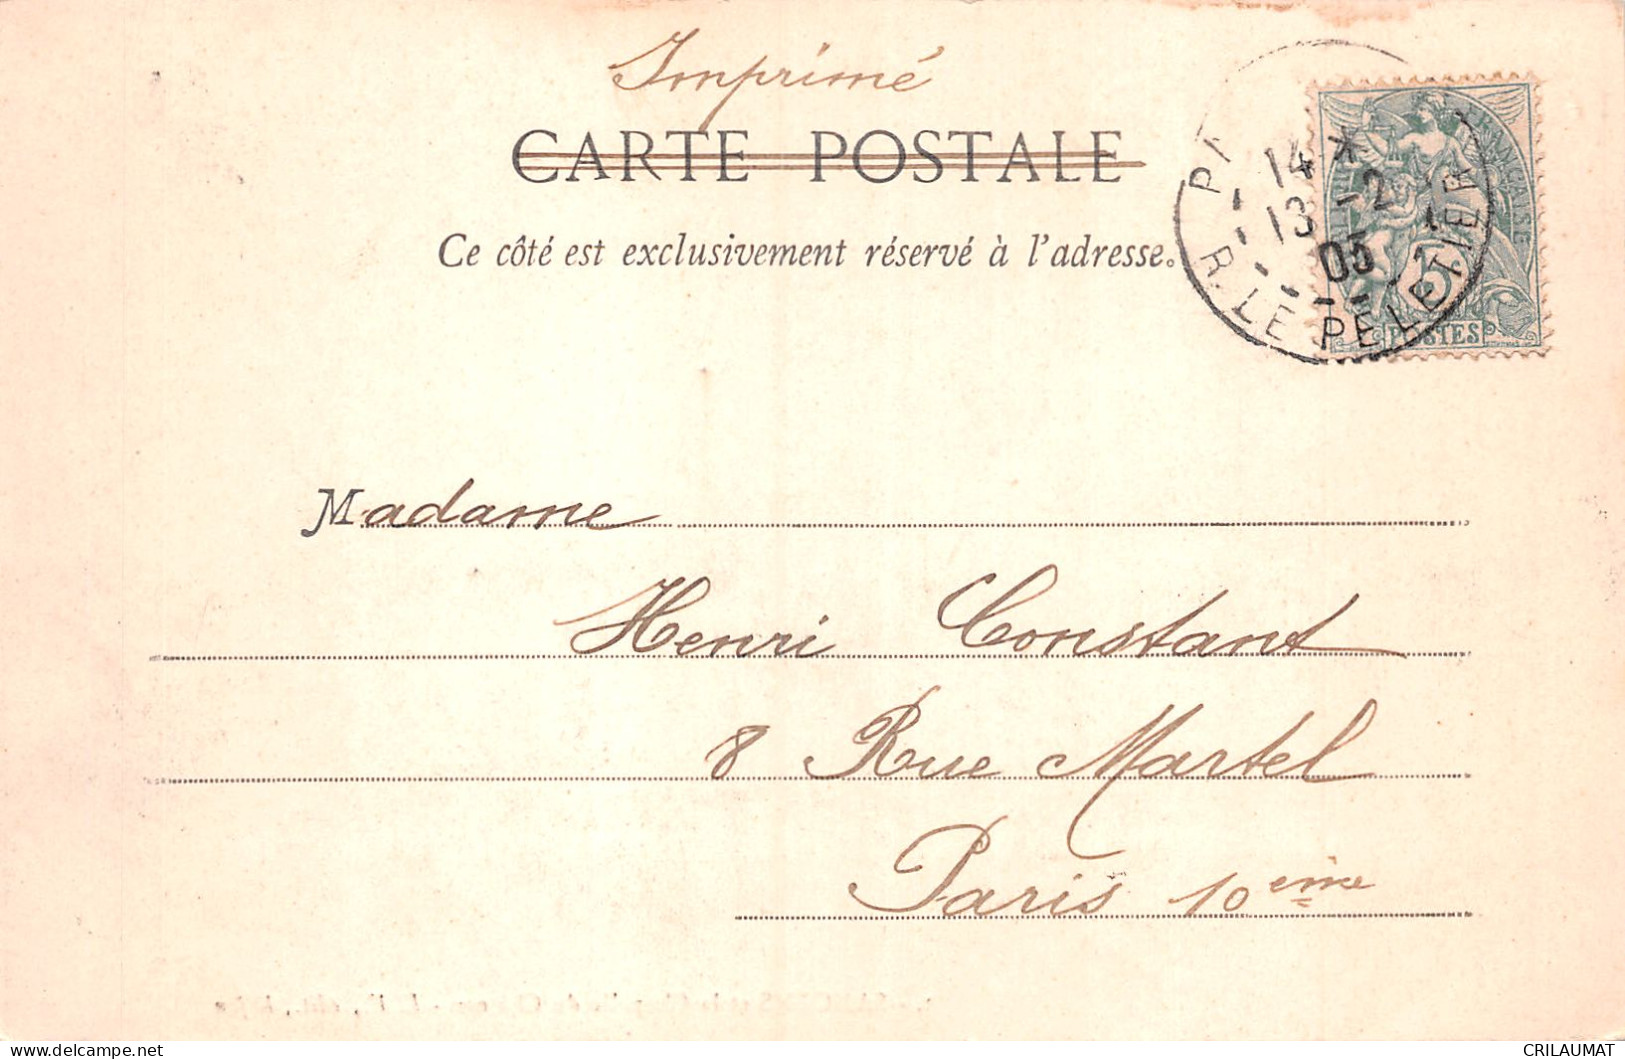 Imprimé
CARTE POSTALE
Ce côté est exclusivement réservé à l'adresse.
14 *
13 -2
05
R. LE PELETIER
FRANÇAISE
5
POSTES
Madame
Henri Constant
8 Rue Martel
Paris 10ème
CRILAUMAT